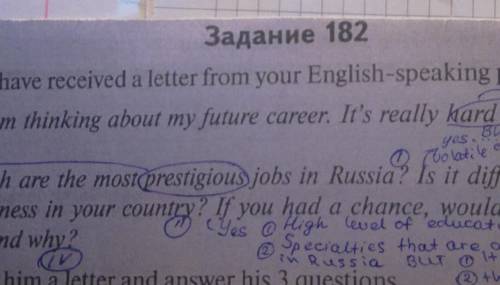 Задание 182
have received a letter from your English-speaking
m thinking about my future career. It's really hard
yes.
① volatile
h are the most prestigious jobs in Russia? Is it diff
ness in your country? If you had a chance, would
nd why?
Yes ① High level of educat
② Specialties that are
in Russia BUT ① 1+
IV
him a letter and answer his 3 questions
② +